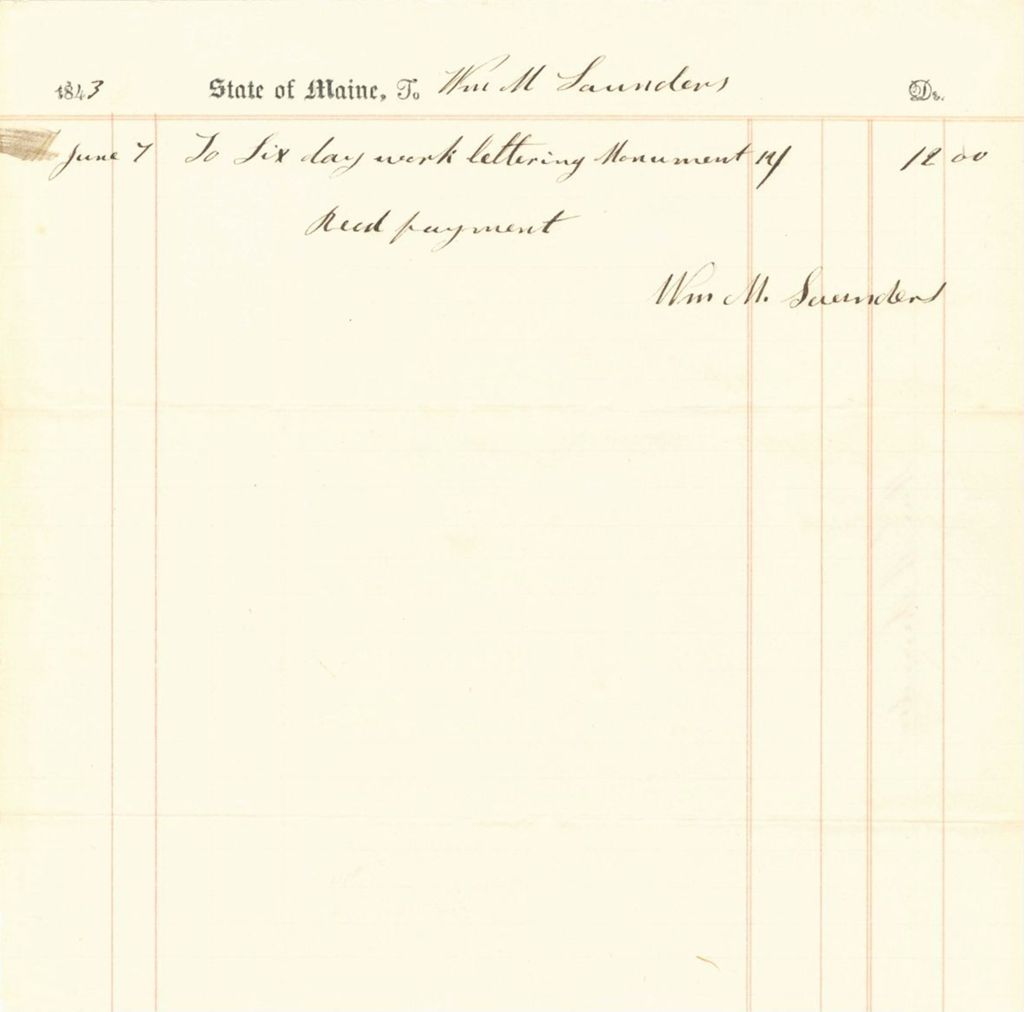 1843 State of Maine, To Wm M Saunders Dr.
June 7 To Six day work lettering Monument 12/ 12 00
Recd payment
Wm M. Saunders